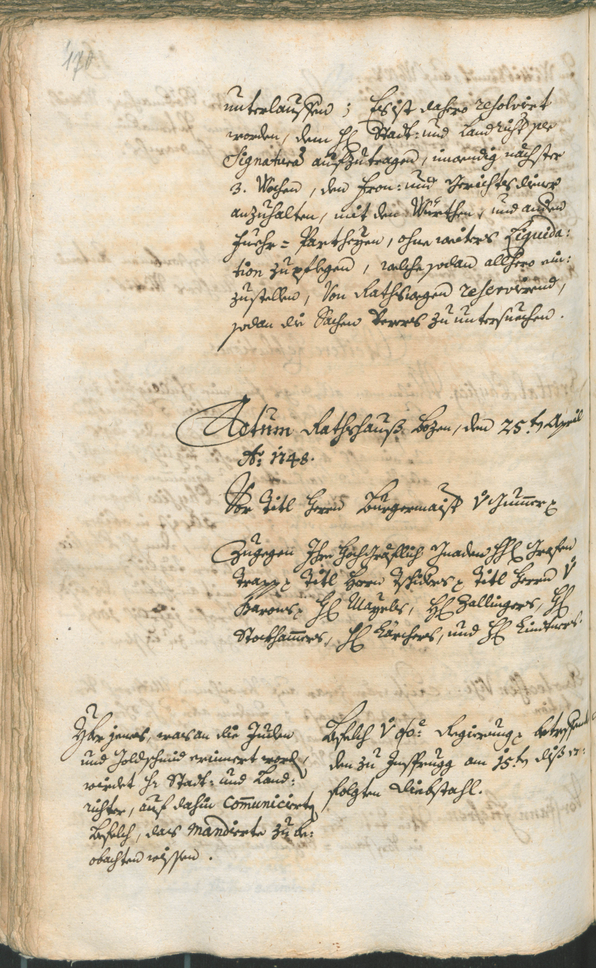 170
unterlauffen; Es ist dahero resolvirt
worden, dem H: Statt- und Landrichter per
Signatura aufzutragen, inwendig nächster
3. Wochen, den Fron- und Gerichtsdiener
anzuhalten, mit den Würthen, und andern
Fuehr- Partheyen, ohne weiters Liquida-
tion zu pflegen, welche sodan allhero ein-
zustellen, Von Rathswegen reservirend,
sodan die Sachen zu untersuechen.
Actum Rathshauß Bozen, den 25.ten April
Ao: 1748.
Vor Titl Herrn Burgermaister V: Gummer
Zugegen Ihro Hochgräflich Gnaden HH: Grafen
Trapp Titl Herrn Tschiders Titl Herrn V
Barons H: Mayrls, H: Zallingers, H:
Stockhamers, H: Kärchers, und H: Lindners.
Über jenes, was an die Juden
und Goldschmid erinnert worden
würdet H: Statt- und Land-
richter, auf dahin Communicierten
Befelch, das Mandirte zu be-
obachten wissen.
Befelch V: o: Regierung betreffend
den zu Ynsprugg am 15.ten diß er-
folgten Diebstahl.